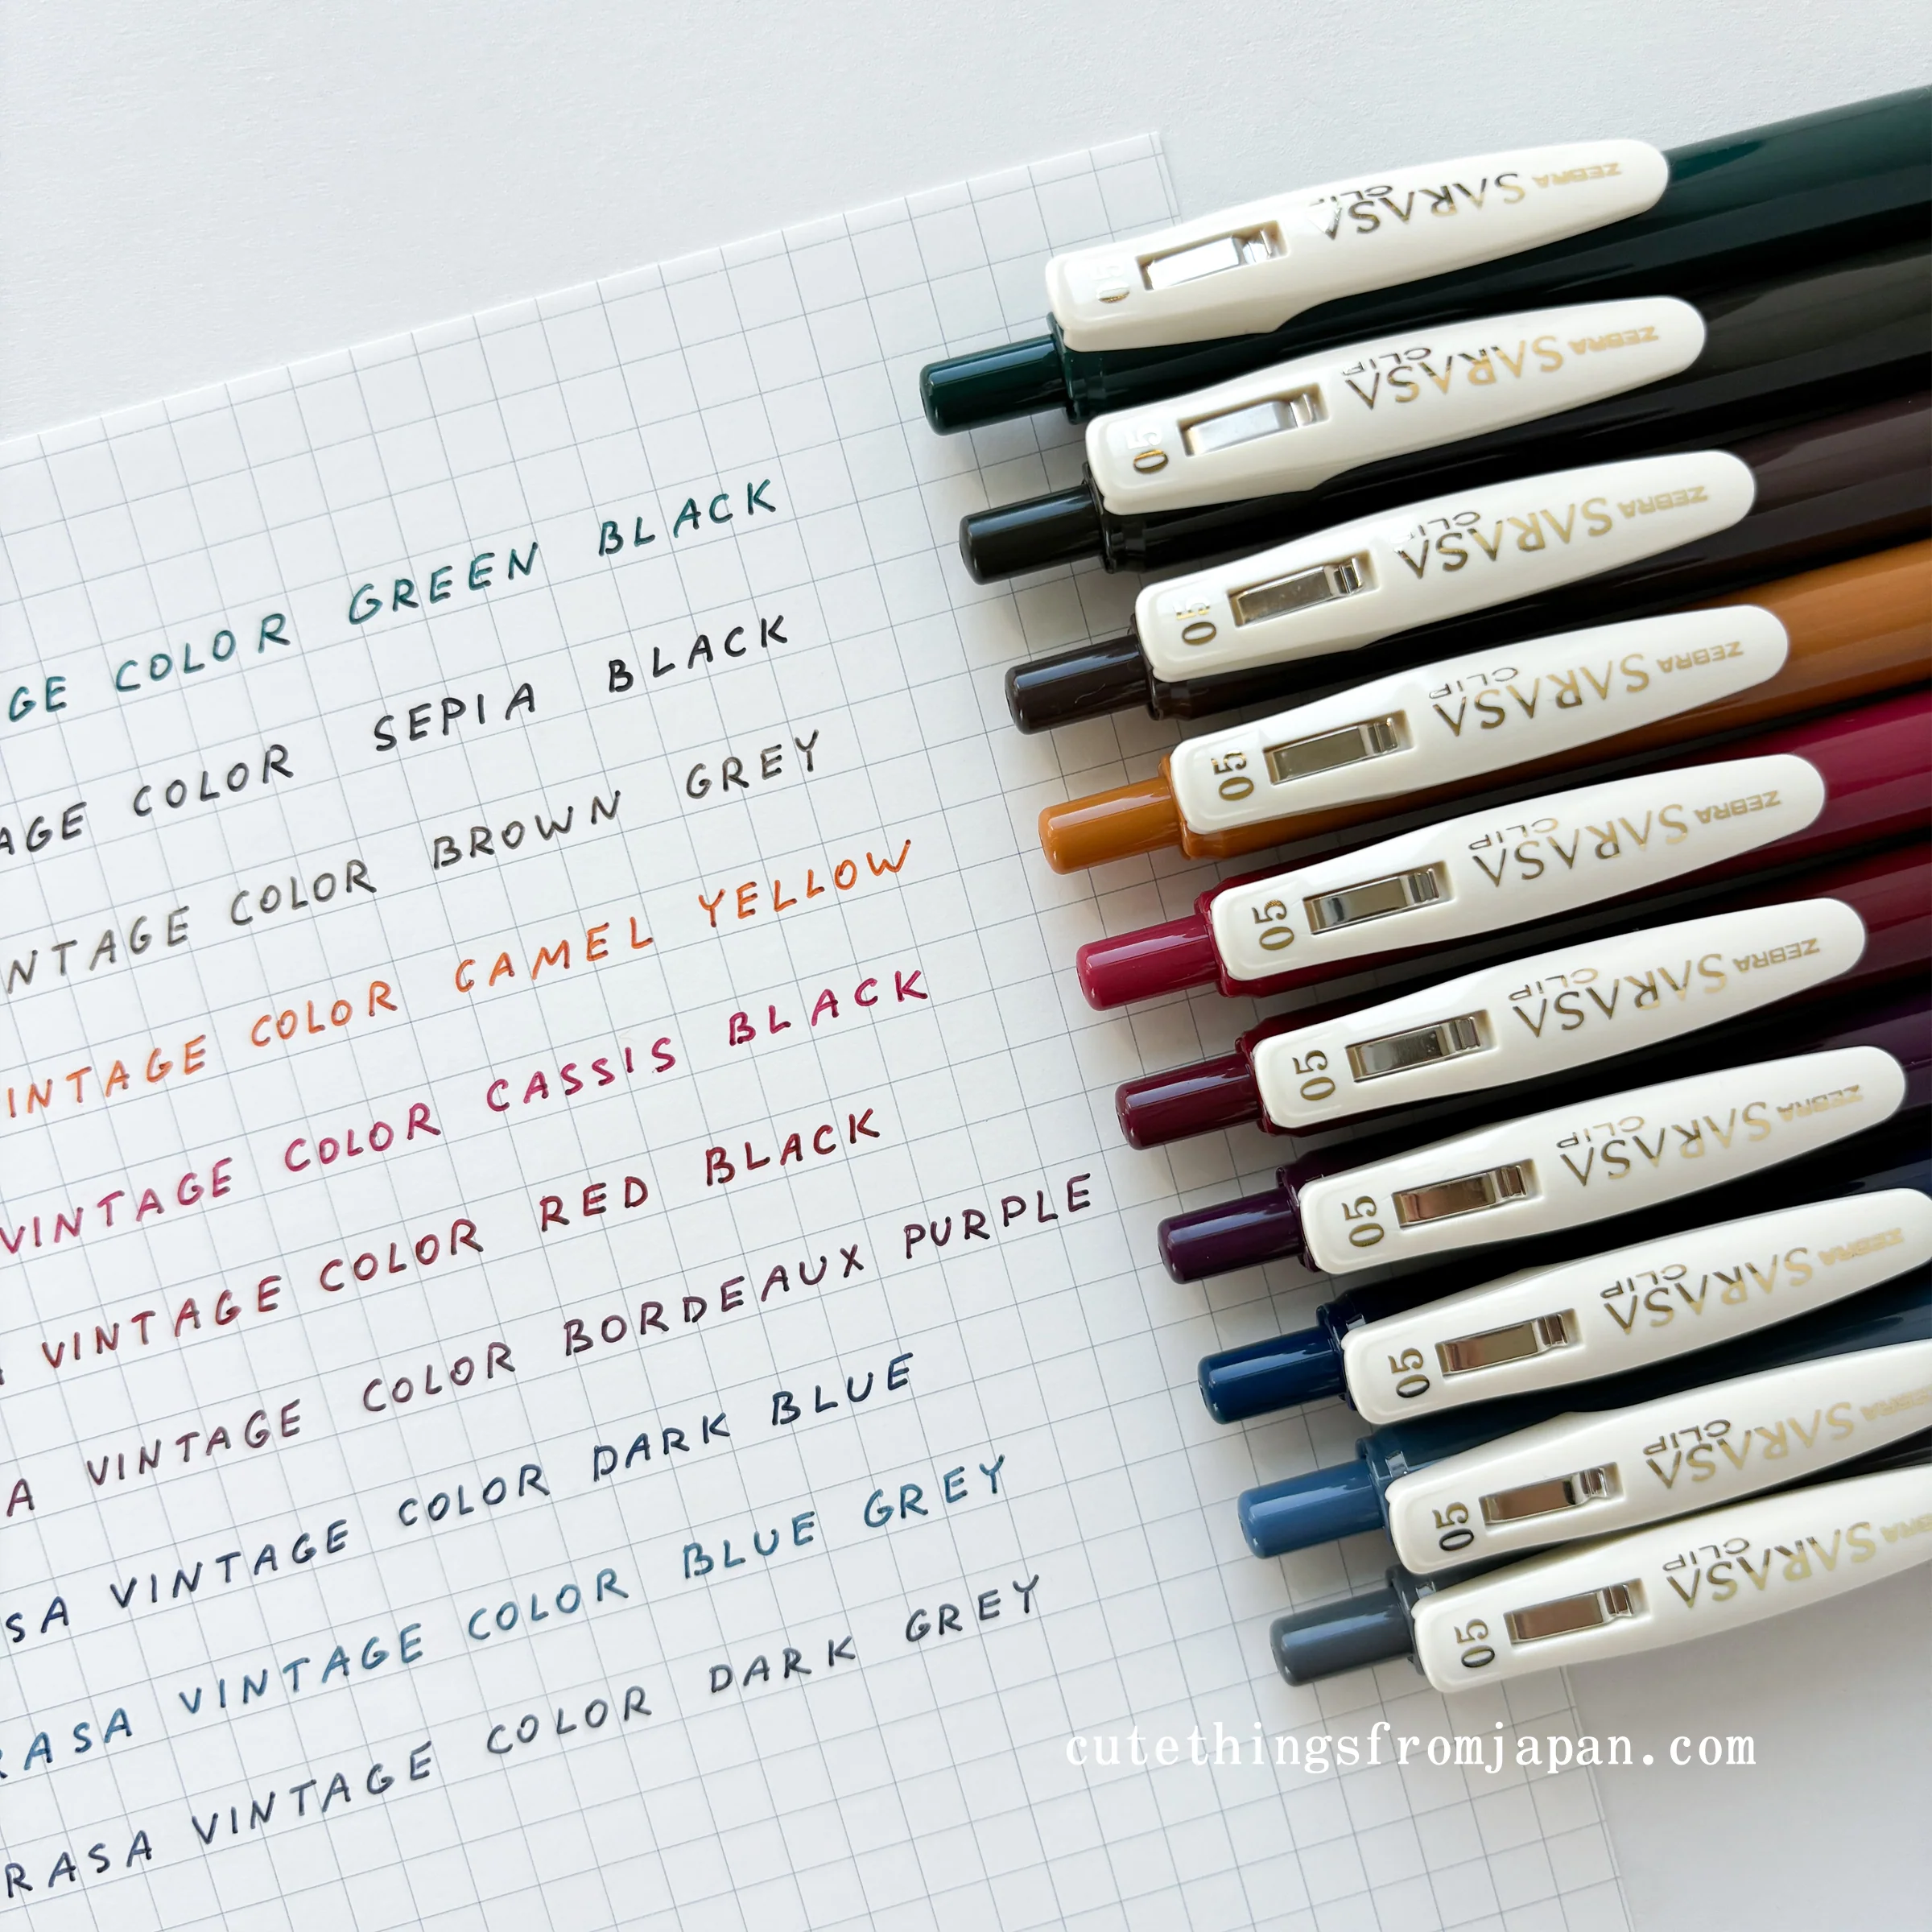 GE COLOR GREEN BLACK
AGE COLOR SEPIA BLACK
NTAGE COLOR BROWN GREY
INTAGE COLOR CAMEL YELLOW
VINTAGE COLOR CASSIS BLACK
VINTAGE COLOR RED BLACK
A VINTAGE COLOR BORDEAUX PURPLE
SA VINTAGE COLOR DARK BLUE
RASA VINTAGE COLOR BLUE GREY
RASA VINTAGE COLOR DARK GREY
ZEBRA SARASA CLIP 05
ZEBRA SARASA CLIP 05
ZEBRA SARASA CLIP 05
ZEBRA SARASA CLIP 05
ZEBRA SARASA CLIP 05
ZEBRA SARASA CLIP 05
ZEBRA SARASA CLIP 05
ZEBRA SARASA CLIP 05
ZEBRA SARASA CLIP 05
BRA SARASA CLIP 05
cutethingsfromjapan.com